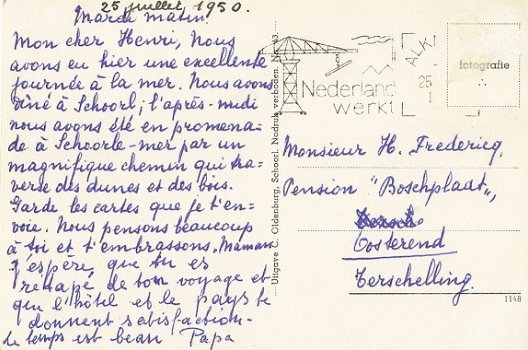 25 juillet, 1950.
Mardi matin.
Mon cher Henri, Nous
avons eu hier une excellente
journée à la mer. Nous avons
dîné à Schoorl; l'après-midi
nous avons été en promena-
de à Schoorle-mer par un
magnifique chemin qui tra=
verse des dunes et des bois.
Garde les cartes que je t'en=
voie. Nous pensons beaucoup
à toi et t'embrassons. Maman
J'espère, que tu es
retapé de ton voyage et
que l'hôtel et le pays te
donnent satisfaction.
Le temps est beau Papa
Uitgave C. Oldenburg, Schoorl. Nadruk verboden. Nr. 63.
Nederland
werkt
ALK
25
1
fotografie
Monsieur H. Fredericq.
Pension "Boschplaat",
Oosterend
Terschelling.
1148